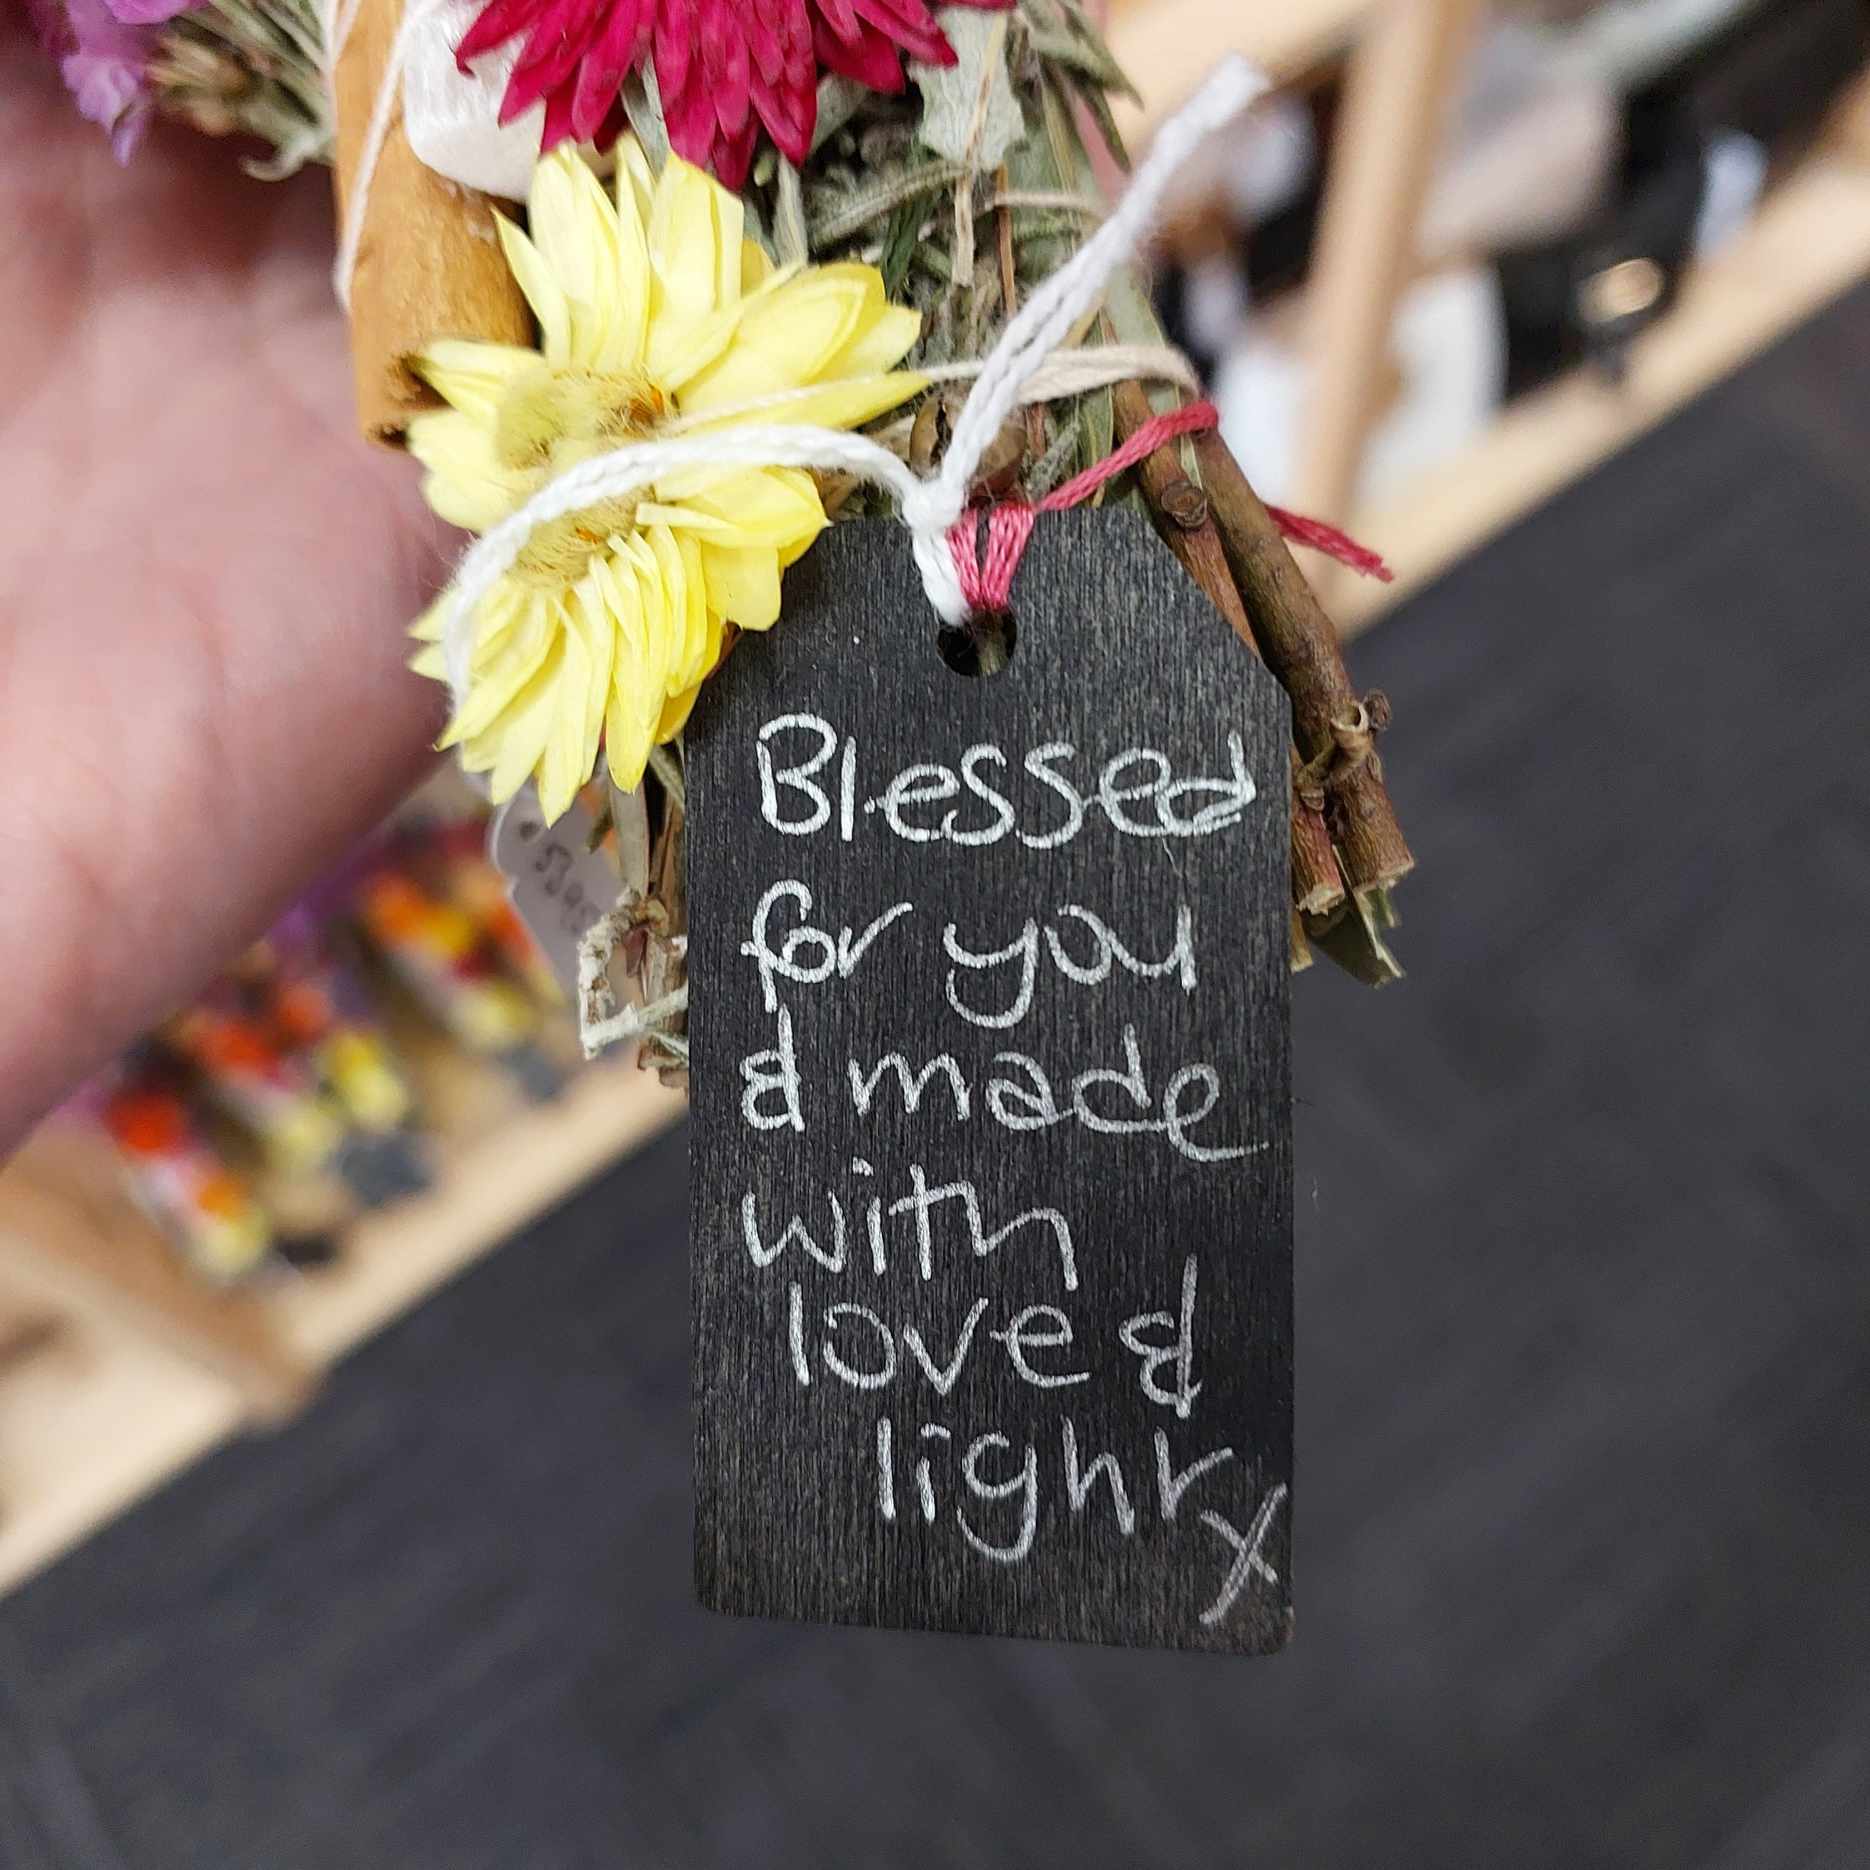 Blessed
for you
& made
with
love &
light
x